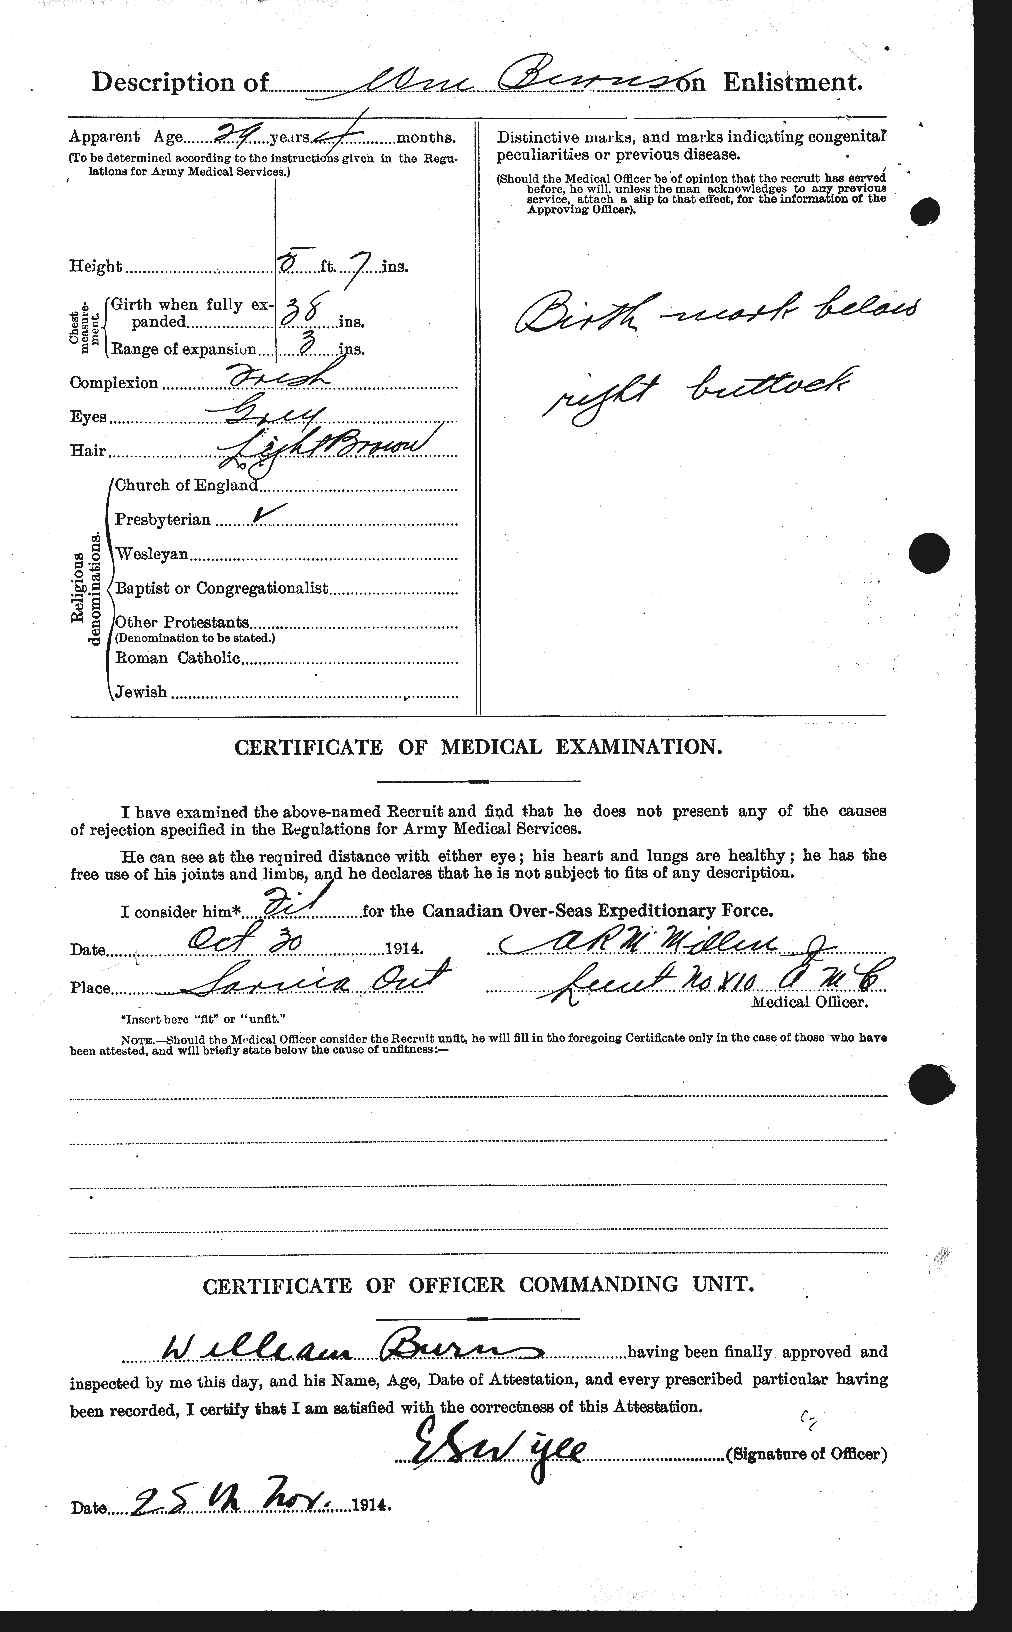 Description of Wm Burns on Enlistment.
Apparent Age 29 years 4 months.
(To be determined according to the instructions given in the Regu-
lations for Army Medical Services.)
Height 5 ft. 7 ins.
Chest measure-ment.
Girth when fully ex-
panded 38 ins.
Range of expansion 3 ins.
Complexion Fresh
Eyes Grey
Hair Light Brown
Religious denominations.
Church of England
Presbyterian ✓
Wesleyan
Baptist or Congregationalist
Other Protestants
(Denomination to be stated.)
Roman Catholic
Jewish
Distinctive marks, and marks indicating congenital
peculiarities or previous disease.
(Should the Medical Officer be of opinion that the recruit has served
before, he will, unless the man acknowledges to any previous
service, attach a slip to that effect, for the information of the
Approving Officer).
Birth mark below
right buttock
CERTIFICATE OF MEDICAL EXAMINATION.
I have examined the above-named Recruit and find that he does not present any of the causes
of rejection specified in the Regulations for Army Medical Services.
He can see at the required distance with either eye; his heart and lungs are healthy; he has the
free use of his joints and limbs, and he declares that he is not subject to fits of any description.
I consider him* Fit for the Canadian Over-Seas Expeditionary Force.
Date Oct 30 1914.
Place Sarnia Ont
Lieut No A M C
Medical Officer.
*Insert here "fit" or "unfit."
NOTE.—Should the Medical Officer consider the Recruit unfit, he will fill in the foregoing Certificate only in the case of those who have
been attested, and will briefly state below the cause of unfitness:—
CERTIFICATE OF OFFICER COMMANDING UNIT.
William Burns having been finally approved and
inspected by me this day, and his Name, Age, Date of Attestation, and every prescribed particular having
been recorded, I certify that I am satisfied with the correctness of this Attestation.
ESWigle (Signature of Officer)
Date 25th Nov. 1914.